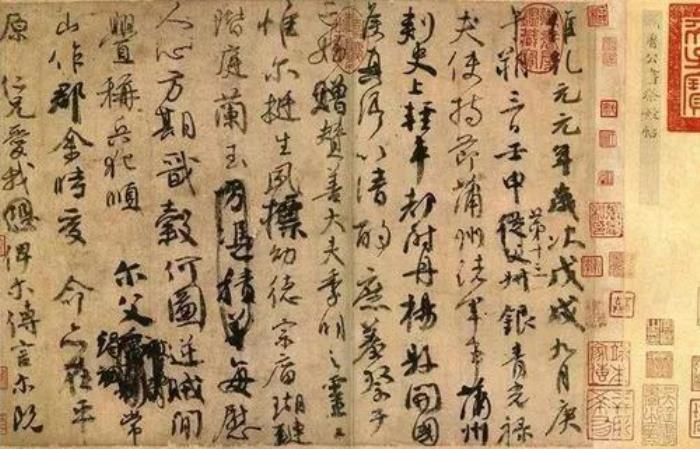 魯公書祭姪帖
維乾元元年歲次戊戌九月庚
午朔三日壬申第十三從父銀青光祿
夫使持節蒲州諸軍事蒲州
刺史上輕車都尉丹楊縣開國
侯真卿以清酌庶羞祭于
亡姪贈贊善大夫季明之靈曰
惟爾挺生夙標幼德宗廟瑚璉
階庭蘭玉方憑積善每慰
人心方期戩穀何圖逆賊閒
釁稱兵犯順爾父常
山作郡余時受命亦在平
原仁兄愛我俾爾傳言爾既